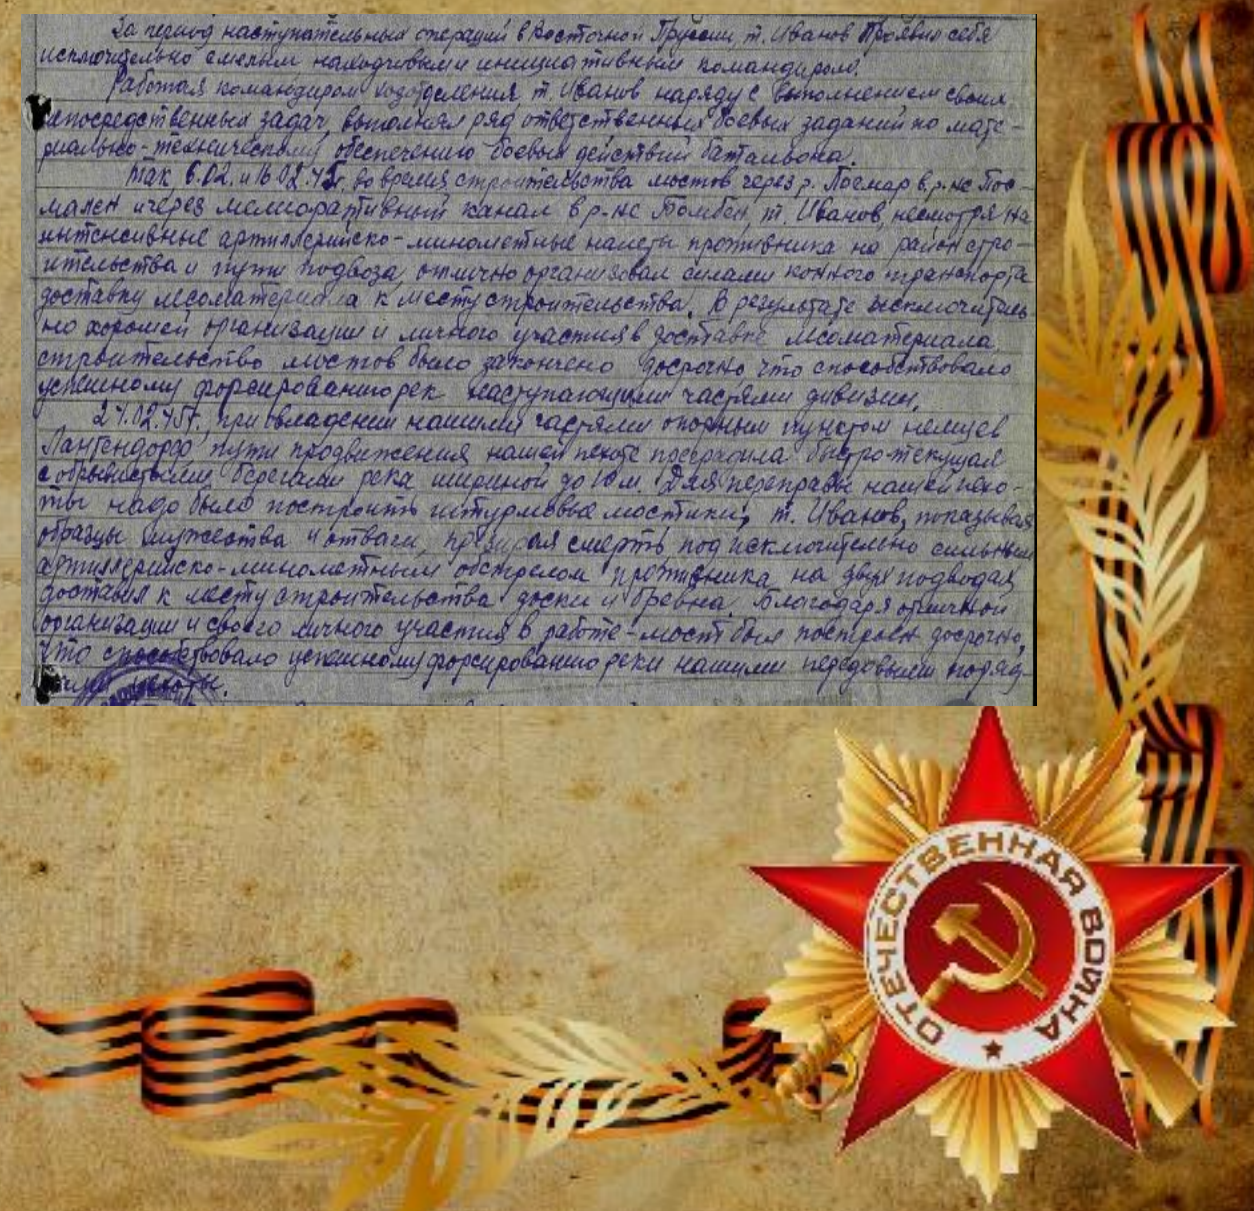 За период наступательных операций в Восточной Пруссии, т. Иванов проявил себя
исключительно смелым находчивым и инициативным командиром.
Работая командиром хозотделения, т. Иванов наряду с выполнением своих
непосредственных задач, выполнял ряд ответственных боевых заданий по мате-
риально-техническому обеспечению боевых действий батальона.
Так, 6.02. и 16.02.45г. во время строительства мостов через р. в р-не
и через мелиоративный канал в р-не т. Иванов, несмотря на
интенсивные артиллерийско-минометные налеты противника на район стро-
ительства и пути подвоза, отлично организовал силами конного транспорта
доставку лесоматериала к месту строительства. В результате исключитель
но хорошей организации и личного участия в доставке лесоматериала
строительство мостов было закончено досрочно, что способствовало
успешному форсированию рек наступающими частями дивизии.
при овладении нашими частями опорным пунктом немцев
Лангендорф, пути продвижения нашей пехоте преградила быстро-текущая
с обрывистыми берегами река шириной до 10 м. Для переправы нашей пехо-
ты надо было построить штурмовые мостики, т. Иванов, показывая
образцы мужества и отваги, презирая смерть под исключительно сильным
артиллерийско-минометным обстрелом противника на двух подводах
доставил к месту строительства доски и бревна. Благодаря отличной
организации и своего личного участия в работе - мост был построен досрочно,
что способствовало успешному форсированию реки нашими передовыми подраз-
пехоты.
ОТЕЧЕСТВЕННАЯ ВОЙНА